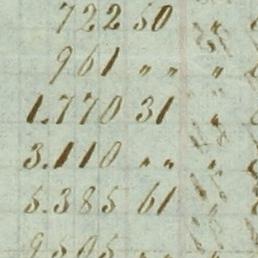 722 50 "
961 " " "
1.770 31 "
3.110 " " "
5.385 61 "